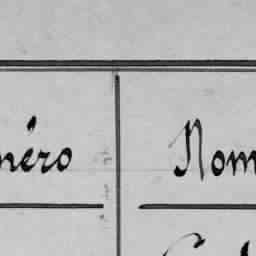 néro Nom